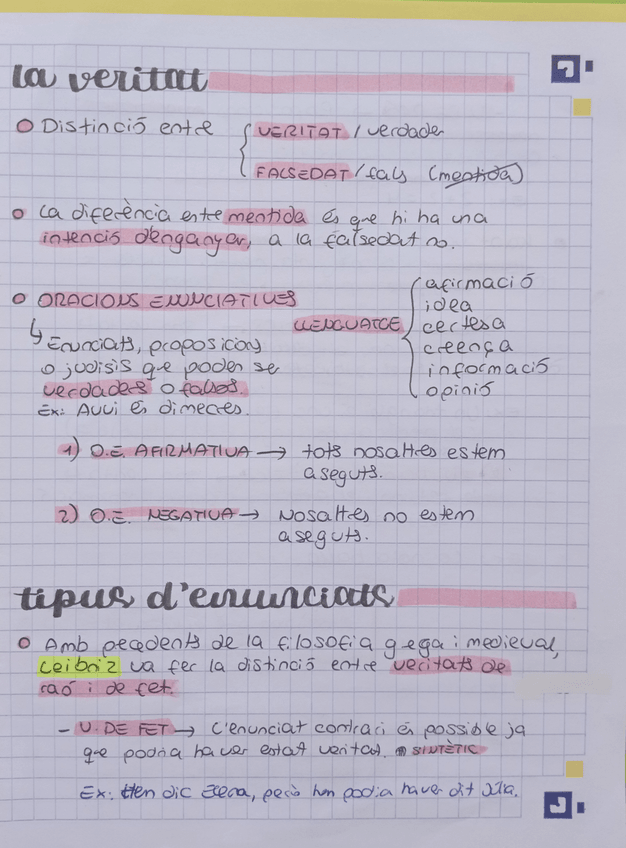 la veritat
Distinció entre { VERITAT / verdader
FALSEDAT / fals (mentida)
La diferència entre mentida és que hi ha una
intenció d'enganyar, a la falsedat no.
ORACIONS ENUNCIATIVES
↳ Enunciats, proposicions
o judisis que poden ser
verdaders o falsos.
Ex: Avui és dimecres.
LLENGUATGE { afirmació
idea
certesa
creença
informació
opinió
1) O.E. AFIRMATIVA → tots nosaltres estem
aseguts.
2) O.E. NEGATIVA → Nosaltres no estem
aseguts.
tipus d'enunciats
Amb precedents de la filosofia grega i medieval,
Leibniz va fer la distinció entre veritats de
raó i de fet.
- V. DE FET → L'enunciat contrari és possible ja
que podria haver estat veritat. SINTÈTIC
Ex: em dic Elena, però hem podria haver dit Júlia.